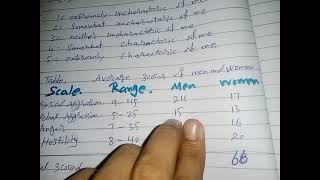 1= extremely uncharacteric of me.
2= Somewhat uncharacteric of me
3= neither uncharacteric of me
4= Somewhat characteric of me.
5= extremely characteric of me.
Table. Average scores of men and women
Scale. Range. Men Women
aggression 9-45 24 17
aggression 5-25 15 13
Anger 7-35 16
Hostility 8-40 20
scored 66